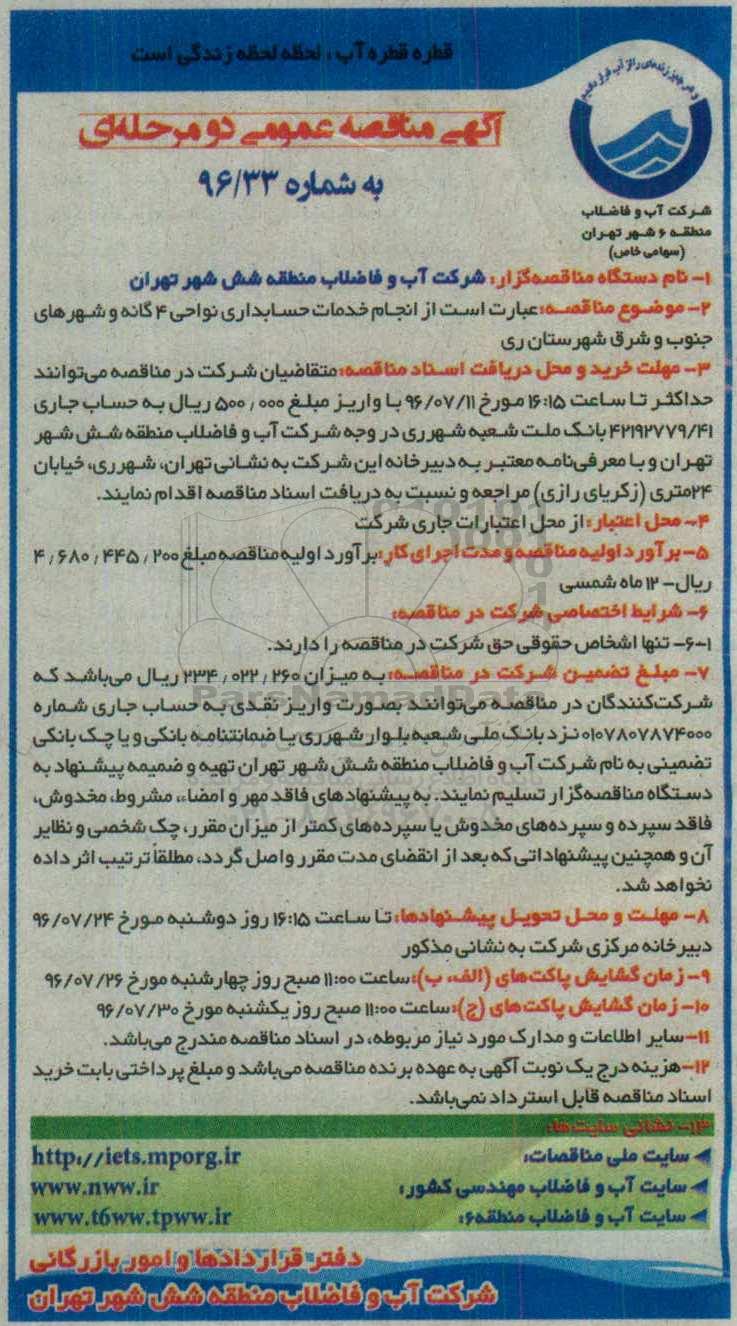 قطره قطره آب ، لحظه لحظه زندگی است
و هر چیز زنده‌ای را از آب قرار دادیم
آگهی مناقصه عمومی دو مرحله‌ای
به شماره ۹۶/۳۳
شرکت آب و فاضلاب
منطقه ۶ شهر تهران
(سهامی خاص)
۱- نام دستگاه مناقصه‌گزار: شرکت آب و فاضلاب منطقه شش شهر تهران
۲- موضوع مناقصه: عبارت است از انجام خدمات حسابداری نواحی ۴ گانه و شهرهای
جنوب و شرق شهرستان ری
۳- مهلت خرید و محل دریافت اسناد مناقصه: متقاضیان شرکت در مناقصه می‌توانند
حداکثر تا ساعت ۱۶:۱۵ مورخ ۹۶/۰۷/۱۱ با واریز مبلغ ۵۰۰٫۰۰۰ ریال به حساب جاری
۴۲۱۹۲۷۷۹/۴۱ بانک ملت شعبه شهرری در وجه شرکت آب و فاضلاب منطقه شش شهر
تهران و با معرفی‌نامه معتبر به دبیرخانه این شرکت به نشانی تهران، شهرری، خیابان
۲۴متری (زکریای رازی) مراجعه و نسبت به دریافت اسناد مناقصه اقدام نمایند.
۴- محل اعتبار: از محل اعتبارات جاری شرکت
۵- برآورد اولیه مناقصه و مدت اجرای کار: برآورد اولیه مناقصه مبلغ ۴٫۶۸۰٫۴۴۵٫۲۰۰
ریال- ۱۲ ماه شمسی
۶- شرایط اختصاصی شرکت در مناقصه:
۶-۱- تنها اشخاص حقوقی حق شرکت در مناقصه را دارند.
۷- مبلغ تضمین شرکت در مناقصه: به میزان ۲۳۴٫۰۲۲٫۲۶۰ ریال می‌باشد که
ParsNamadData
شرکت‌کنندگان در مناقصه می‌توانند بصورت واریز نقدی به حساب جاری شماره
۰۱۰۷۸۰۷۸۷۴۰۰۰ نزد بانک ملی شعبه بلوار شهرری یا ضمانتنامه بانکی و یا چک بانکی
تضمینی به نام شرکت آب و فاضلاب منطقه شش شهر تهران تهیه و ضمیمه پیشنهاد به
دستگاه مناقصه‌گزار تسلیم نمایند. به پیشنهادهای فاقد مهر و امضاء، مشروط، مخدوش،
فاقد سپرده و سپرده‌های مخدوش یا سپرده‌های کمتر از میزان مقرر، چک شخصی و نظایر
آن و همچنین پیشنهاداتی که بعد از انقضای مدت مقرر واصل گردد، مطلقاً ترتیب اثر داده
نخواهد شد.
۸- مهلت و محل تحویل پیشنهادها: تا ساعت ۱۶:۱۵ روز دوشنبه مورخ ۹۶/۰۷/۲۴
دبیرخانه مرکزی شرکت به نشانی مذکور
۹- زمان گشایش پاکت‌های (الف، ب): ساعت ۱۱:۰۰ صبح روز چهارشنبه مورخ ۹۶/۰۷/۲۶
۱۰- زمان گشایش پاکت‌های (ج): ساعت ۱۱:۰۰ صبح روز یکشنبه مورخ ۹۶/۰۷/۳۰
۱۱- سایر اطلاعات و مدارک مورد نیاز مربوطه، در اسناد مناقصه مندرج می‌باشد.
۱۲- هزینه درج یک نوبت آگهی به عهده برنده مناقصه می‌باشد و مبلغ پرداختی بابت خرید
اسناد مناقصه قابل استرداد نمی‌باشد.
۱۳- نشانی سایت‌ها:
سایت ملی مناقصات: http://iets.mporg.ir
سایت آب و فاضلاب مهندسی کشور: www.nww.ir
سایت آب و فاضلاب منطقه۶: www.t6ww.tpww.ir
دفتر قراردادها و امور بازرگانی
شرکت آب و فاضلاب منطقه شش شهر تهران